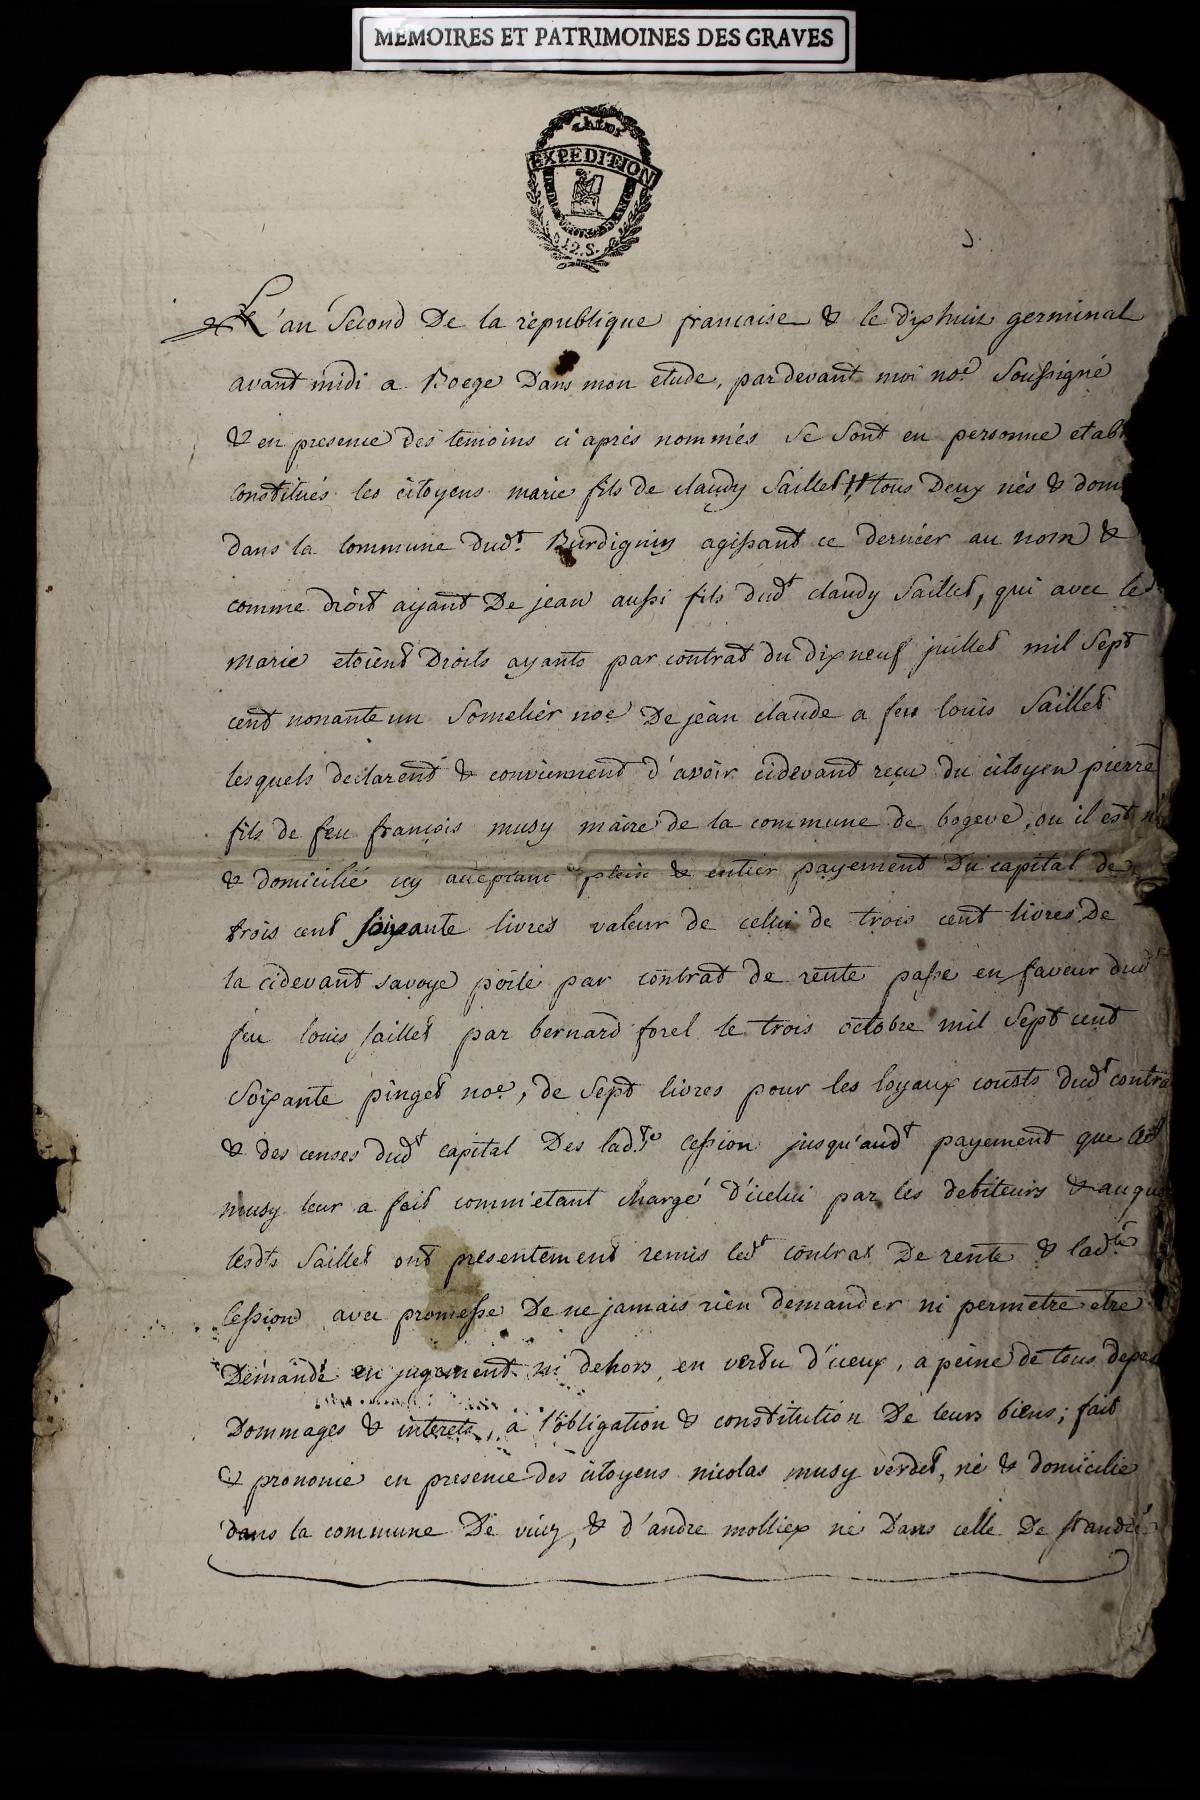 MEMOIRES ET PATRIMOINES DES GRAVES
EXPEDITION
12.S.
L'an second De la république francaise & le dix huit germinal
avant midi a Boege Dans mon etude, pardevant moi noe. Soussigné
& en presence des temoins ci aprés nommés se sont en personne etab
constitués les citoyens marie fils de claudy Saillet tous Deux nés & dom
dans la commune dudt. Burdignin agissant ce dernier au nom &
comme droit ayant De jean aussi fils dudt claudy Saillet, qui avec le
marie etoient Droits ayants par contrat du dix neuf juillet mil sept
cent nonante un Somelier noe De jean claude a feu louis Saillet
lesquels declarent & conviennent d'avoir cidevant reçu du citoyen pierre
fils de feu françois musy maire de la commune de bogeve, ou il est né
& domicilié icy acceptant plein & entier payement Du capital de
trois cent soixante livres valeur de celui de trois cent livres De
la cidevant savoye porté par contrat de rente passé en faveur dudt
feu louis saillet par bernard forel le trois octobre mil sept cent
soixante pinget noe, de sept livres pour les loyaux cousts dudt contra
& des censes dudt capital Des ladte cession jusqu'audt payement que ledt
musy leur a fait comm'etant chargé d'icelui par les debiteurs & auque
lesdts Saillet ont présentement remis ledt contrat De rente & ladte
cession avec promesse De ne jamais rien demander ni permetre etre
Démandé en jugement ni dehors, en vertu d'iceux, a peine de tous depe
Dommages & interets, à l'obligation & constitution De leurs biens; fait
& prononcé en presence des citoyens nicolas musy verdet, né & domicilié
dans la commune De viuz, & d'andre molliex né Dans celle De st andré